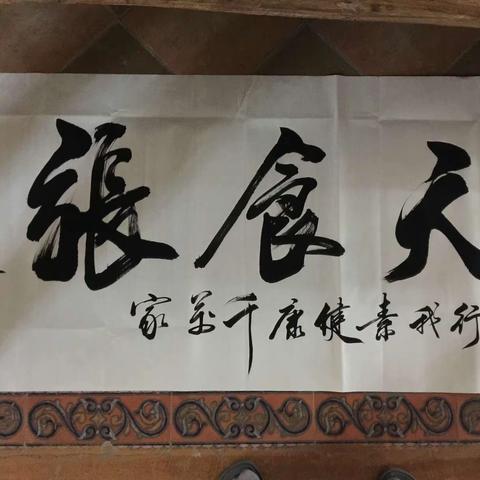 天食張
行我素健康千萬家